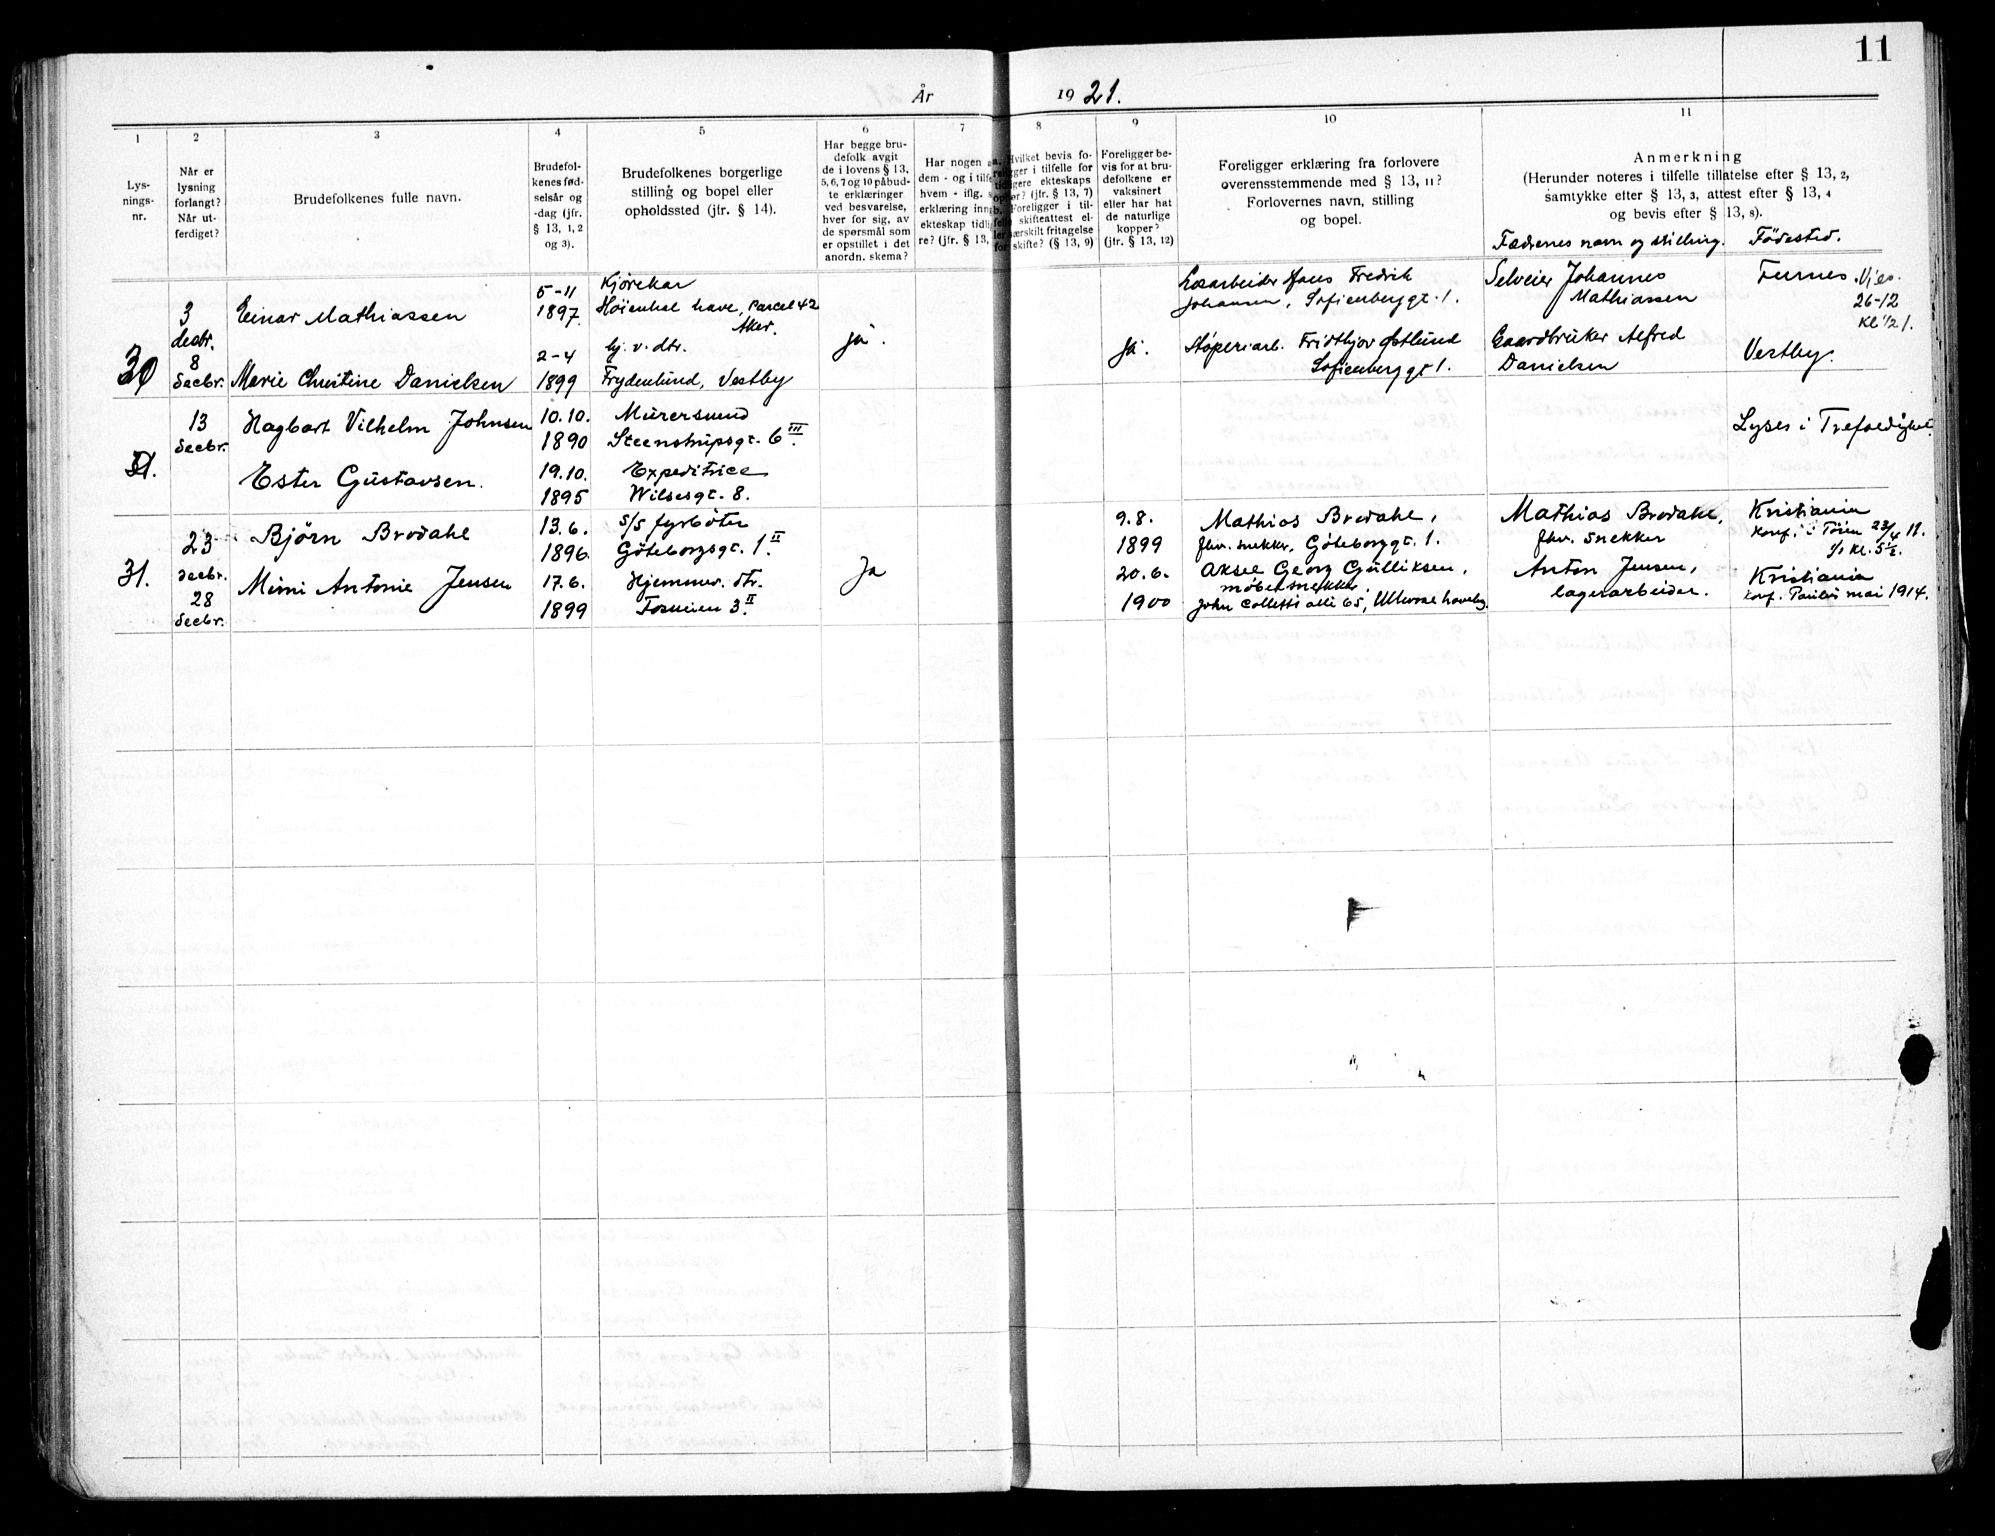 11
År 1921.
1
2
3
4
5
6
7
8
9
10
11
Lys-
nings-
nr.
Når er
lysning
forlangt?
Når ut-
ferdiget?
Brudefolkenes fulle navn.
Brudefol-
kenes fød-
selsår og
-dag (jfr.
§ 13, 1, 2
og 3).
Brudefolkenes borgerlige
stilling og bopel eller
opholdssted (jfr. § 14).
Har begge bru-
defolk avgit
de i lovens § 13,
5, 6, 7 og 10 påbud-
te erklæringer
ved besvarelse,
hver for sig, av
de spørsmål som
er opstillet i det
anordn. skema?
Har nogen a
dem - og i tilfe
hvem - iflg. s
erklæring inng
ekteskap tidlig
re? (jfr. § 13,
Hvilket bevis fo-
gger i tilfelle for
igere ekteskaps
or? (jfr. § 13, 7)
Foreligger i til-
skifteattest el-
særskilt fritagelse
skifte? (§ 13, 9)
Foreligger be-
vis for at bru-
defolkene er
vaksinert
eller har hat
de naturlige
kopper?
(jfr. § 13, 12)
Foreligger erklæring fra forlovere
overensstemmende med § 13, 11?
Forlovernes navn, stilling
og bopel.
Anmerkning
(Herunder noteres i tilfelle tillatelse efter § 13, 2,
samtykke efter § 13, 3, attest efter § 13, 4
og bevis efter § 13, 8).
Fædrenes navn og stilling. Fødested.
30
3
decbr.
8
Decbr.
Einar Mathiassen
5-11
1897.
Kjørekar
Høienhal have, Parcel 42
Aker.
ja.
Hans Fredrik
Johansen, Sofienberggt. 1.
Selveier Johannes
Mathiassen
Furnes
Vies
26-12
Kl ½1.
Marie Christine Danielsen
2-4
1899
hj. v. dtr.
Frydenlund, Vestby
Ja.
Støperiarb. Fridtjov Østlund
Sofienberggt 1.
Gaardbruker Alfred
Danielsen
Vestby.
31.
13
Decbr.
Hagbart Vilhelm Johnsen
10.10.
1890
Murersvend
Steenstrupsgt. 6 III.
Lyses i Trefoldighet.
Ester Gustavsen.
19.10.
1895
Expeditrice
Wilsesgt. 8.
31.
23
Decbr.
28
Decbr.
Bjørn Brodahl
13.6.
1896
S/S fyrbøter
Göteborgsgt. 1 II.
Ja
9.8.
1899
Mathias Brodahl,
fhv. snekker, Göteborggt. 1.
Mathias Brodahl,
fhv. snekker
Kristiania
Konf. i Tøien 23/4 11.
1/1 Kl. 5½.
Mimi Antonie Jensen
17.6.
1899
Hjemmev. dtr.
3 II.
20.6.
1900
Aksel Georg Gulliksen,
møbelsnekker,
John Colletts alle 65, Ullevaal haveby.
Anton Jensen,
lagerarbeider.
Kristiania
Konf. Paulus mai 1914.